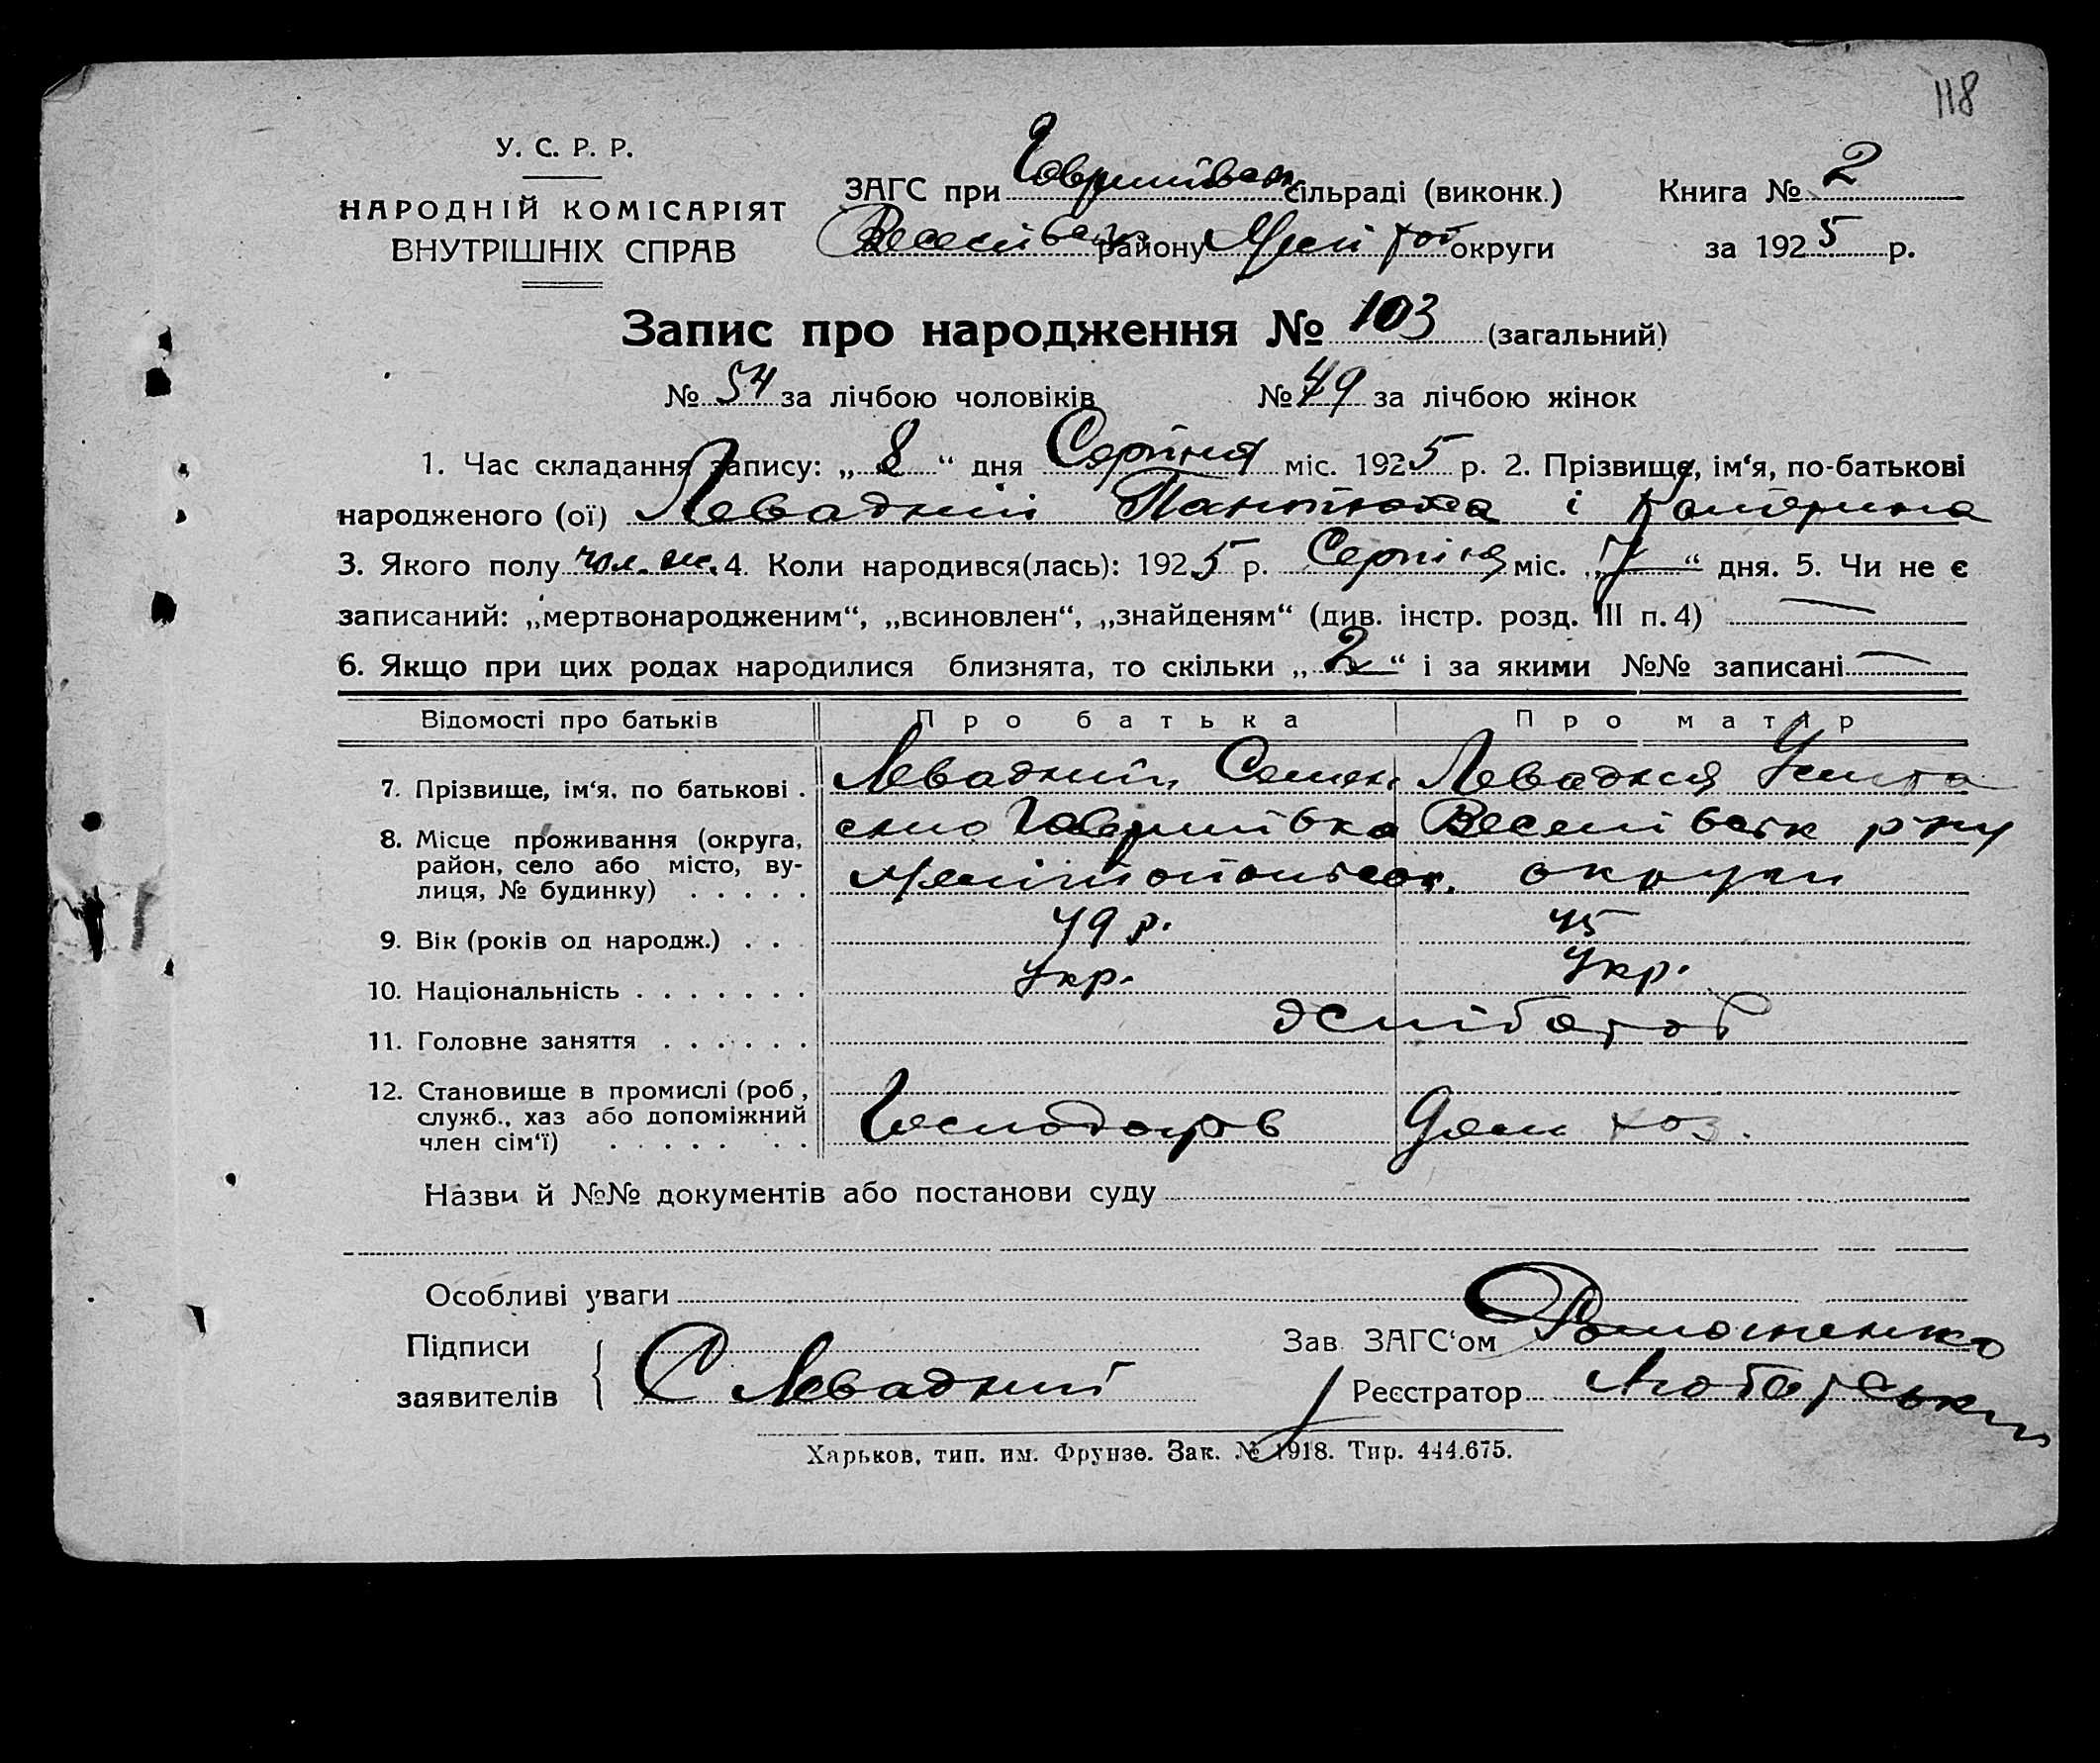 118
У. С. Р. Р.
НАРОДНІЙ КОМІСАРІЯТ
ВНУТРІШНІХ СПРАВ
ЗАГС при Гаврилівськ сільраді (виконк.)
Книга № 2
Веселівськ району Меліт округи
за 1925 р.
Запис про народження № 103 (загальний)
№ 54 за лічбою чоловіків № 49 за лічбою жінок
1. Час складання запису: „ 8 “ дня Серпня міс. 1925 р. 2. Прізвище, ім‘я, по-батькові
народженого (ої) Левадній і Катерина
3. Якого полу чол. ж. 4. Коли народився(лась): 1925 р. Серпня міс. „ 7 “ дня. 5. Чи не є
записаний: „мертвонародженим“, „всиновлен“, „знайденям“ (див. інстр. розд. III п. 4) —
6. Якщо при цих родах народилися близнята, то скільки „ 2 “ і за якими №№ записані —
Відомості про батьків Про батька Про матір
7. Прізвище, ім‘я, по батькові . Левадний Семен Левадня
8. Місце проживання (округа, село Гаврилівка Веселівськ р-ну
район, село або місто, ву-
лиця, № будинку) . . . . . округи
9. Вік (років од народж.) . . 49 р. 45
10. Національність . . . . . . . Укр. Укр.
11. Головне заняття . . . . . . Хлібороб
12. Становище в промислі (роб,
служб., хаз або допоміжний Господарь Дом хоз.
член сім‘ї) . . . . . . .
Назви й №№ документів або постанови суду
Особливі уваги
Підписи
Зав. ЗАГС‘ом
заявителів С Левадний
Реєстратор
Харьков, тип. им. Фрунзе. Зак. № 1918. Тир. 444.675.